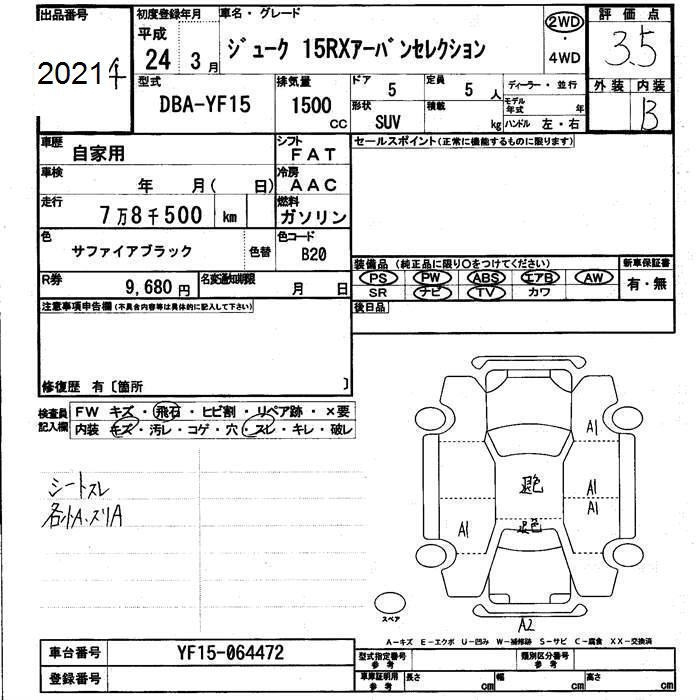 出品番号
20214
初度登録年月
平成
24 3月
車名・グレード
ジューク 15RXアーバンセレクション
2WD
・
4WD
評価点
3.5
外装 内装
B
型式
DBA-YF15
排気量
1500
CC
ドア
5
定員
5 人
形状
SUV
積載
kg
ディーラー・並行
モデル年式 年
ハンドル 左・右
車歴
自家用
シフト
FAT
車検
年 月( 日)
冷房
AAC
走行
7万8千500 km
燃料
ガソリン
色
サファイアブラック
色替
色コード
B20
R券
9,680 円
名変通知期限
月 日
セールスポイント(正常に機能するものに限ります)
装備品(純正品に限り○をつけてください)
PS PW ABS エアB AW
SR ナビ TV カワ
新車保証書
有・無
後日品
注意事項申告欄(不具合内容等は具体的に記入して下さい)
修復歴 有〔箇所 〕
検査員
記入欄
FW キズ・飛石・ヒビ割・リペア跡・×要
内装 キズ・汚レ・コゲ・穴・スレ・キレ・破レ
シートスレ
各外A.ズリA
A1
退色
A1
A1
退色
A1
スペア
A2
A-キズ E-エクボ U-凹み W-補修跡 S-サビ C-腐食 XX-交換済
車台番号
YF15-064472
登録番号
型式指定番号
参考
類別区分番号
参考
車庫証明用
参考
長さ cm
幅 cm
高さ cm